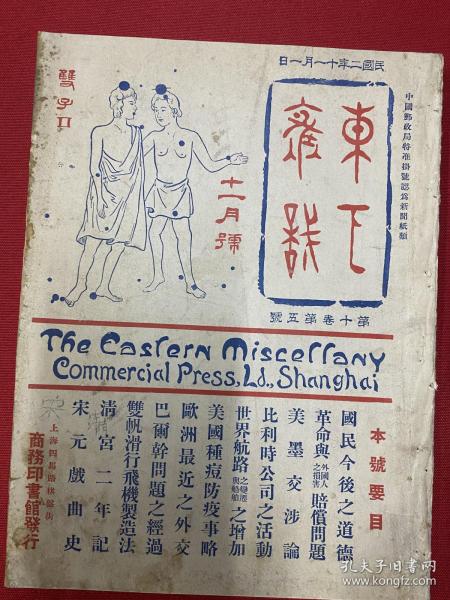 民國二年十一月一日
中國郵政局特准掛號認爲新聞紙類
東方雜誌
雙子 II
十一月號
第十卷第五號
The Eastern Miscellany
Commercial Press, Ld., Shanghai
本號要目
國民今後之道德
革命與外國人之損害賠償問題
美墨交涉論
比利時公司之活動
世界航路之變遷與船舶之增加
美國種痘防疫事略
歐洲最近之外交
巴爾幹問題之經過
雙帆滑行飛機製造法
清宮二年記
宋元戲曲史
上海四馬路棋盤街
商務印書館發行
孔夫子旧书网